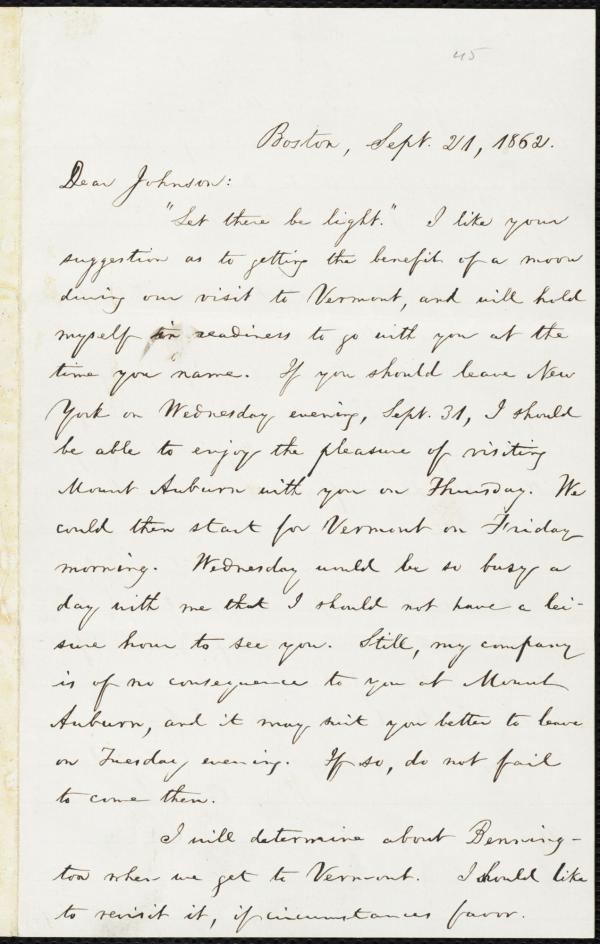 45
Boston, Sept. 21, 1862.
Dear Johnson:
"Let there be light." I like your
suggestion as to getting the benefit of a moon
during our visit to Vermont, and will hold
myself in readiness to go with you at the
time you name. If you should leave New
York on Wednesday evening, Sept. 31, I should
be able to enjoy the pleasure of visiting
Mount Auburn with you on Thursday. We
could then start for Vermont on Friday
morning. Wednesday would be so busy a
day with me that I should not have a lei-
sure hour to see you. Still, my company
is of no consequence to you at Mount
Auburn, and it may suit you better to leave
on Tuesday evening. If so, do not fail
to come then.
I will determine about Benning-
ton when we get to Vermont. I should like
to revisit it, if circumstances favor.